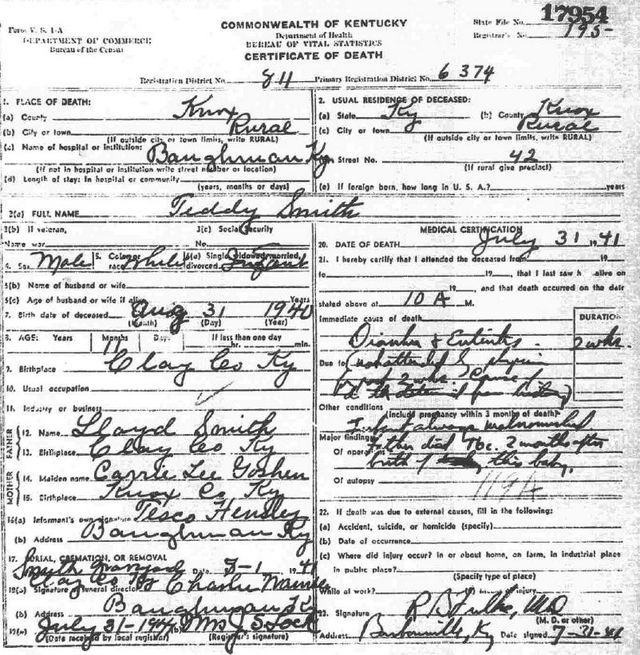 Form V. S. 1-A
DEPARTMENT OF COMMERCE
Bureau of the Census
COMMONWEALTH OF KENTUCKY
Department of Health
BUREAU OF VITAL STATISTICS
CERTIFICATE OF DEATH
State File No. 17954
Registrar's No. 195-
Registration District No. 811 Primary Registration District No. 6374
1. PLACE OF DEATH:
(a) County Knox
(b) City or town Rural
(If outside city or town limits, write RURAL)
(c) Name of hospital or institution: Baughman Ky
(If not in hospital or institution write street number or location)
(d) Length of stay: In hospital or community
(years, months or days)
2. USUAL RESIDENCE OF DECEASED:
(a) State Ky (b) County Knox
(c) City or town Rural
(If outside city or town limits, write RURAL)
Street No. 42
(If rural give precinct)
(e) If foreign born, how long in U. S. A.? years
3(a) FULL NAME Teddy Smith
3(b) If veteran,
Name war
3(c) Social Security
No.
4. Sex Male 5. Color or race White 6(a) Single, widowed, married, divorced Infant
6(b) Name of husband or wife
6(c) Age of husband or wife if alive Years
7. Birth date of deceased Aug 31 1940
(Month) (Day) (Year)
8. AGE: Years Months Days If less than one day
11 hr. min.
9. Birthplace Clay Co Ky
10. Usual occupation
11. Industry or business
FATHER
12. Name Lloyd Smith
13. Birthplace Clay Co Ky
MOTHER
14. Maiden name Carrie Lee Goshen
15. Birthplace Knox Co Ky
16(a) Informant's own signature Tesco Hensley
(b) Address Baughman Ky
17. BURIAL, CREMATION, OR REMOVAL
Smith Graveyard Date -1 1941
Clay Co
18(a) Signature of funeral director Charlie
(b) Address Baughman Ky
19(a) July 31-1941 Mrs J S Lock
(Date received by local registrar) (Registrar's signature)
MEDICAL CERTIFICATION
20. DATE OF DEATH July 31 1941
21. I hereby certify that I attended the deceased from
19 , to 19 , that I last saw h alive on
19 , and that death occurred on the date
stated above at 10 A M.
Immediate cause of death DURATION
Diarrhea & Enteritis 2 wks
Due to (unattended by physician
2 wks. Cause
from history)
Other conditions
(Include pregnancy within 3 months of death)
Infant always malnourished
Major findings:
Of operations Father died Tbc. 2 months after
birth of this baby.
Of autopsy 119A
22. If death was due to external causes, fill in the following:
(a) Accident, suicide, or homicide (specify)
(b) Date of occurrence
(c) Where did injury occur? In or about home, on farm, in industrial place
in public place?
(Specify type of place)
While at work?
23. Signature MD
(M. D. or other)
Address Barbourville, Ky Date signed 7-31-41